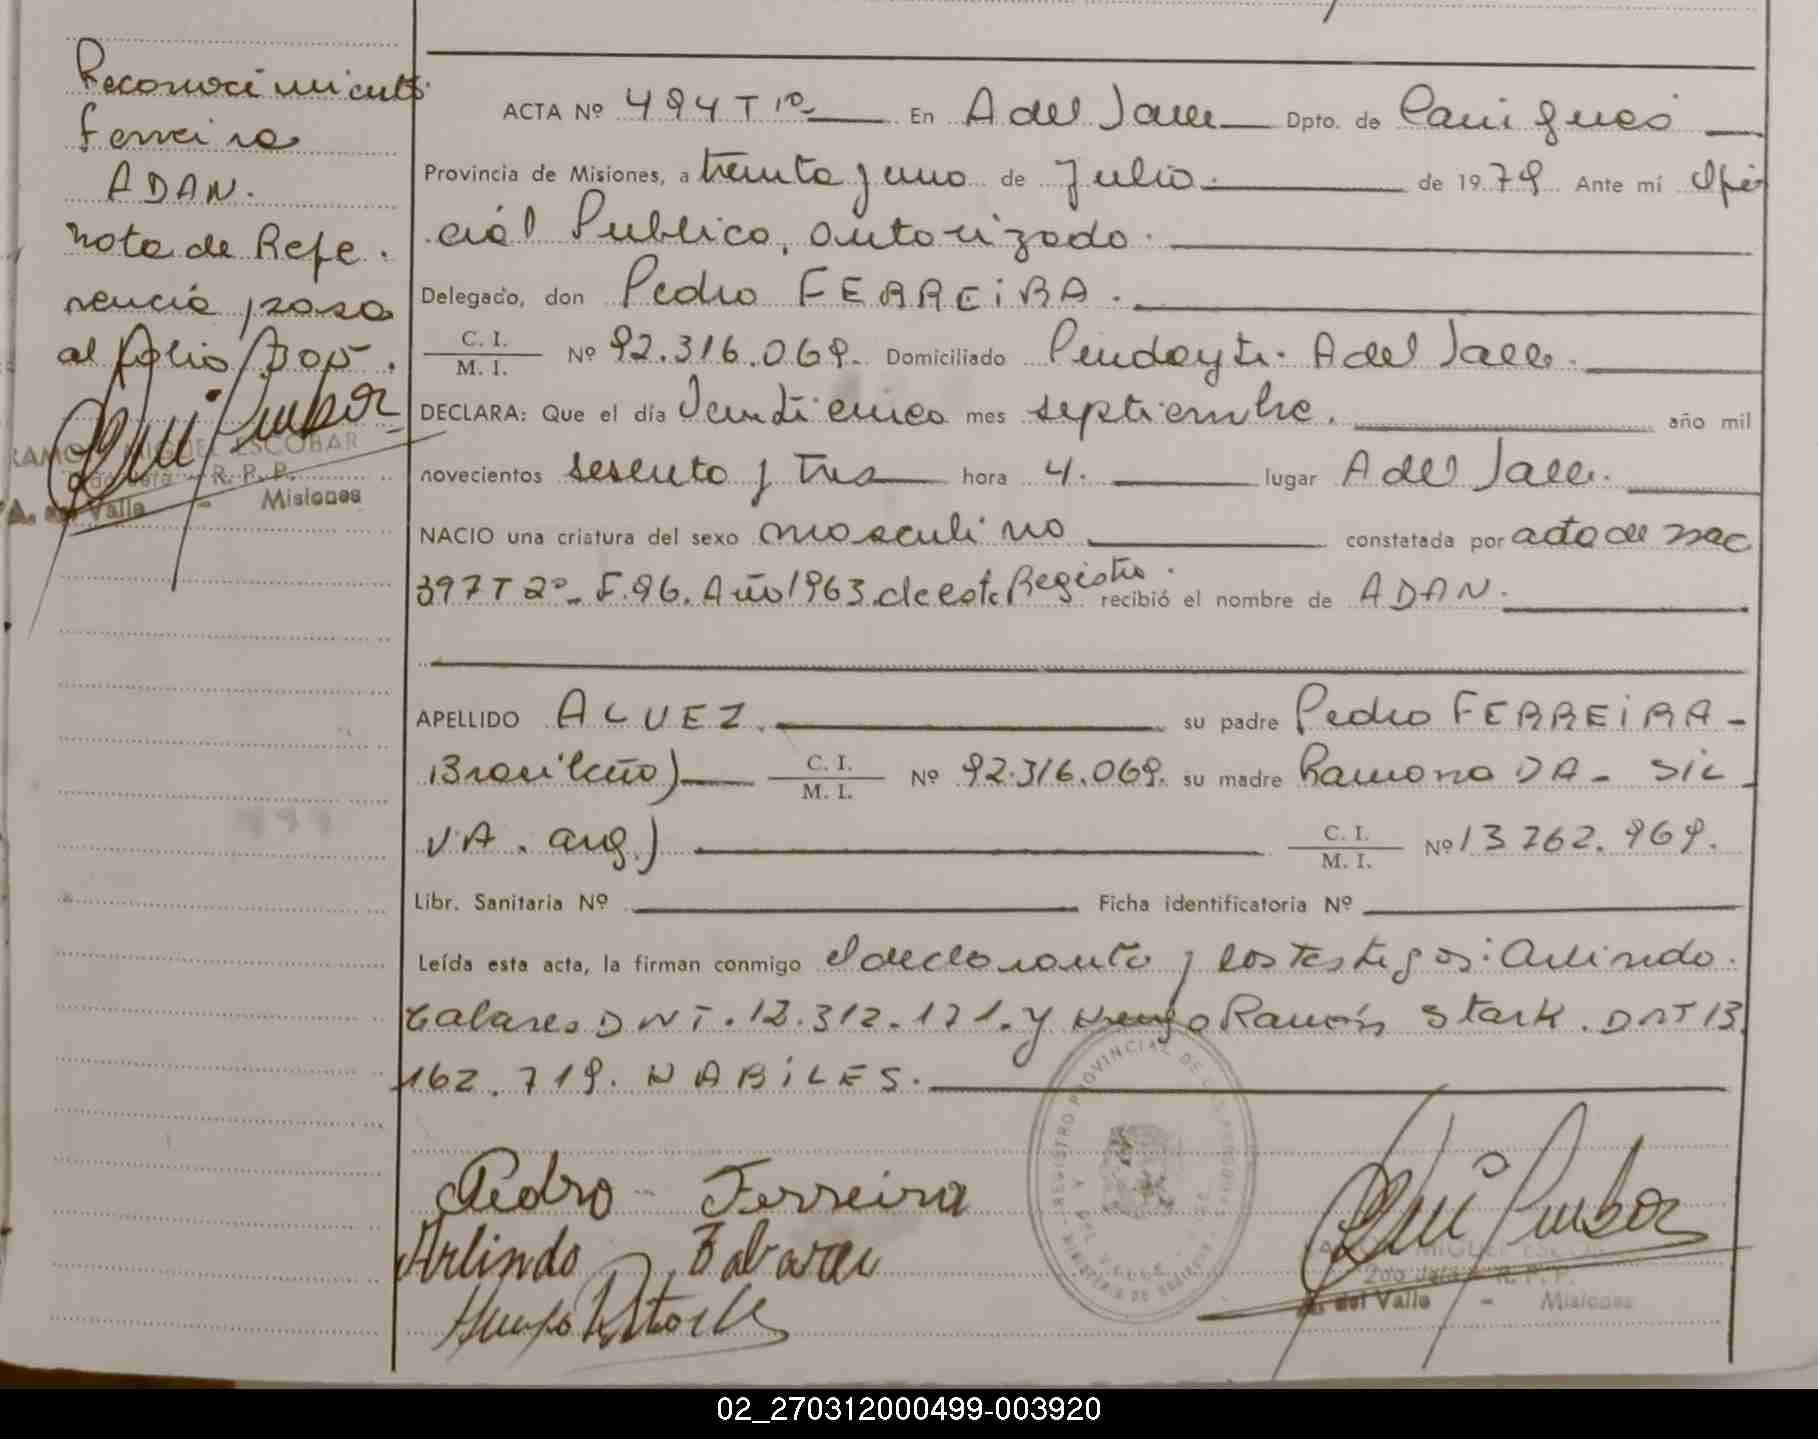 Reconocimiento
Ferreira
ADAN.
nota de Refe
rencia paso
al folio 305.
RAMON MIGUEL ESCOBAR
2do Jefe - R. P. P.
A. del Valle - Misiones
ACTA Nº 494 T 1º En A del Valle Dpto. de Cainguas
Provincia de Misiones, a treinta y uno de Julio. de 1979 Ante mí Ofi
cial Publico, autorizado.
Delegado, don Pedro FERREIRA.
C. I.
M. I. Nº 92.316.069. Domiciliado Pindayti. A del Valle.
DECLARA: Que el día Veinticinco mes septiembre. año mil
novecientos sesenta y tres hora 4. lugar A del Valle.
NACIO una criatura del sexo masculino constatada por acta de nac
397 T 2º F.96. Año 1963 de este Registro. recibió el nombre de ADAN.
APELLIDO ALVEZ. su padre Pedro FERREIRA-
Brasileño) C. I.
M. I. Nº 92.316.069. su madre Ramona DA- SIL
VA. arg.) C. I.
M. I. Nº 13 262.969.
Libr. Sanitaria Nº Ficha identificatoria Nº
Leída esta acta, la firman conmigo el declarante y los testigos: Arlindo.
Tabares DNI. 12.312.121. y Hugo Ramón Stark. DNI 13
162.719. HABILES.
Pedro Ferreira
Arlindo Tabarez
Hugo R Stark
REGISTRO PROVINCIAL DE LAS PERSONAS
MIGUEL ESCOBAR
2do Jefe - R. P. P.
A. del Valle - Misiones
02_270312000499-003920